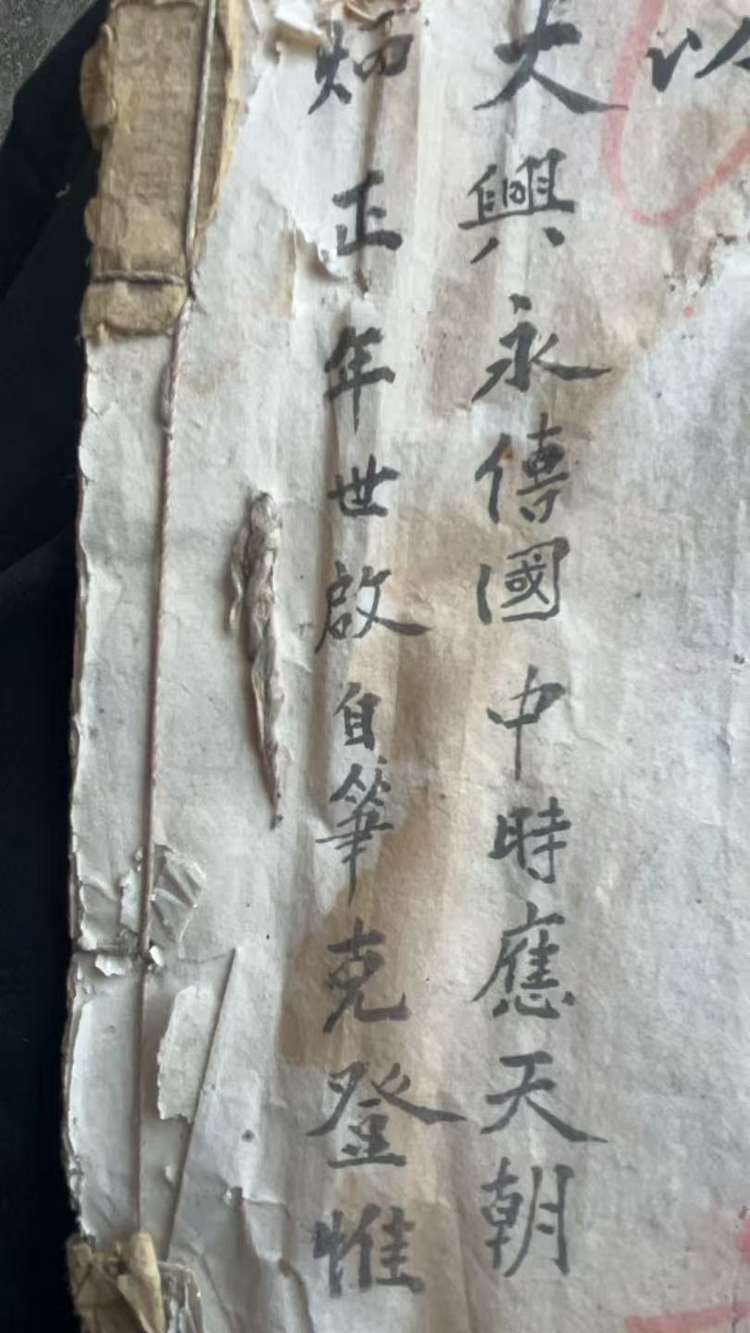 以
大興永傳國中時應天朝
炳正年世啟自筆克登惟